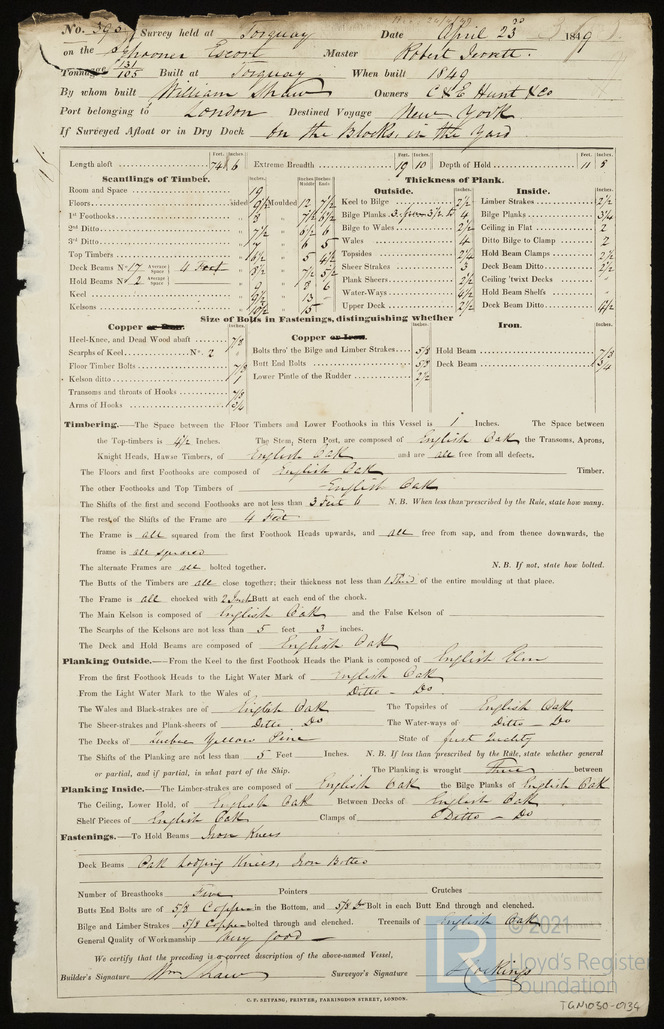 No. 392 Survey held at Torquay Date April 23rd 1849
on the Schooner Escort Master Robert Jerrett
Tonnage 131/105 Built at Torquay When built 1849
By whom built William Shaw Owners C & E Hunt & Co
Port belonging to London Destined Voyage New York
If Surveyed Afloat or in Dry Dock on the Blocks, in the Yard
Feet. Inches. Feet. Inches. Feet. Inches.
Length aloft 74 6 Extreme Breadth 19 10 Depth of Hold 11 5
Scantlings of Timber. Thickness of Plank.
Outside. Inside.
Room and Space 19
Floors sided 9 1/2 Moulded 12 7 1/2
1st Foothooks 8
2nd Ditto 7 1/2 6 1/2 6
3rd Ditto 7 6 5
Top Timbers 6 1/2 5 4 1/2
Deck Beams No 17 Average Space 4 Feet 8 1/2 7 1/2 5 1/2
Hold Beams No 2 Average Space 9 8 6
Keel 9 1/2 13
Kelsons 10 1/2
Keel to Bilge 2 1/2
Bilge Planks 4
Bilge to Wales 2 1/2
Wales 4
Topsides 2 1/4
Sheer Strakes 3
Plank Sheers 2 1/2
Water-Ways 4 1/2
Upper Deck 2 1/2
Limber Strakes 2 1/2
Bilge Planks 3/4
Ceiling in Flat 2
Ditto Bilge to Clamp 2
Hold Beam Clamps 2 1/2
Deck Beam Ditto 2 1/2
Ceiling 'twixt Decks "
Hold Beam Shelfs "
Deck Beam Ditto 4 1/2
Size of Bolts in Fastenings, distinguishing whether
Copper or Iron. Copper or Iron. Iron.
Heel-Knee, and Dead Wood abaft 7/8
Scarphs of Keel No. 2
Floor Timber Bolts 7/8
Kelson ditto 1
Transoms and throats of Hooks 7/8
Arms of Hooks 3/4
Bolts thro' the Bilge and Limber Strakes 5/8
Butt End Bolts 5/8
Lower Pintle of the Rudder 2 1/2
Hold Beam 7/8
Deck Beam 3/4
Timbering.—The Space between the Floor Timbers and Lower Foothooks in this Vessel is 1 Inches. The Space between
the Top-timbers is 4 1/2 Inches. The Stem, Stern Post, are composed of English Oak the Transoms, Aprons,
Knight Heads, Hawse Timbers, of English Oak and are all free from all defects.
The Floors and first Foothooks are composed of English Oak Timber.
The other Foothooks and Top Timbers of English Oak
The Shifts of the first and second Foothooks are not less than 3 Feet 6 N.B. When less than prescribed by the Rule, state how many.
The rest of the Shifts of the Frame are 4 Feet
The Frame is all squared from the first Foothook Heads upwards, and all free from sap, and from thence downwards, the
frame is all squared
The alternate Frames are all bolted together. N.B. If not, state how bolted.
The Butts of the Timbers are all close together; their thickness not less than 1 Third of the entire moulding at that place.
The Frame is all chocked with 2 Inch Butt at each end of the chock.
The Main Kelson is composed of English Oak and the False Kelson of
The Scarphs of the Kelsons are not less than 5 feet 3 inches.
The Deck and Hold Beams are composed of English Oak
Planking Outside.—From the Keel to the first Foothook Heads the Plank is composed of English Elm
From the first Foothook Heads to the Light Water Mark of English Oak
From the Light Water Mark to the Wales of Ditto - Do
The Wales and Black-strakes are of English Oak The Topsides of English Oak
The Sheer-strakes and Plank-sheers of Ditto Do The Water-ways of Ditto - Do
The Decks of Quebec Yellow Pine State of first Quality
The Shifts of the Planking are not less than 5 Feet Inches. N.B. If less than prescribed by the Rule, state whether general
or partial, and if partial, in what part of the Ship. The Planking is wrought Three between
Planking Inside.—The Limber-strakes are composed of English Oak the Bilge Planks of English Oak
The Ceiling, Lower Hold, of English Oak Between Decks of English Oak
Shelf Pieces of English Oak Clamps of Ditto - Do
Fastenings.—To Hold Beams Iron Knees
Deck Beams Oak Lodging Knees, Iron Bolts
Number of Breasthooks Five Pointers Crutches
Butts End Bolts are of 5/8 Copper in the Bottom, and 5/8 Do Bolt in each Butt End through and clenched.
Bilge and Limber Strakes 5/8 Copper bolted through and clenched. Treenails of English Oak
General Quality of Workmanship Very Good
We certify that the preceding is a correct description of the above-named Vessel,
Builder's Signature Wm Shaw Surveyor's Signature J Hockings
C. F. SEYFANG, PRINTER, FARRINGDON STREET, LONDON.
LR © 2021
Lloyd's Register
Foundation
TGN1030-0134